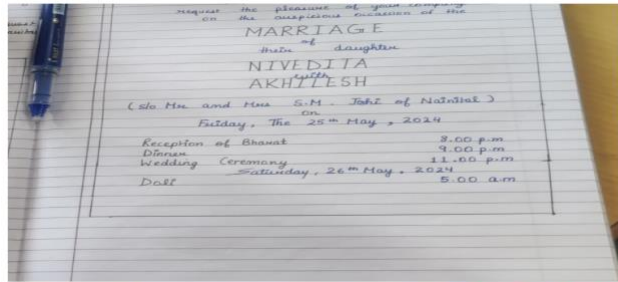 request the pleasure of your company
on the auspicious occasion of the
MARRIAGE
of
their daughter
NIVEDITA
with
AKHILESH
(s/o Mr. and Mrs S.M. Joshi of Nainital)
on
Friday, The 25th May, 2024
Reception of Bharat 8.00 p.m
Dinner 9.00 p.m
Wedding Ceremony 11.00 p.m
Saturday, 26th May, 2024
Doli 5.00 a.m